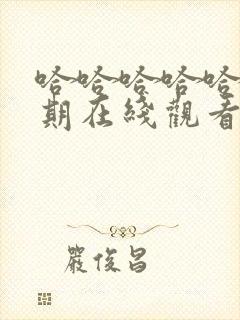 哈哈哈哈哈
期在綫觀看
嚴俊昌